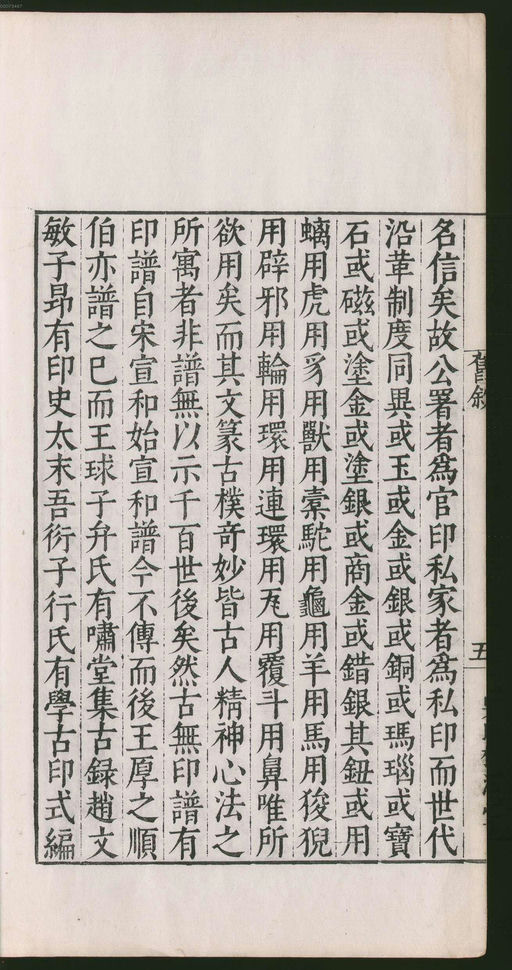 舊敘
五
名信矣故公署者爲官印私家者爲私印而世代
沿革制度同異或玉或金或銀或銅或瑪瑙或寶
石或磁或塗金或塗銀或商金或錯銀其鈕或用
螭用虎用豸用獸用槖駝用龜用羊用馬用狻猊
用辟邪用輪用環用連環用瓦用覆斗用鼻唯所
欲用矣而其文篆古樸奇妙皆古人精神心法之
所寓者非譜無以示千百世後矣然古無印譜有
印譜自宋宣和始宣和譜今不傳而後王厚之順
伯亦譜之巳而王球子弁氏有嘯堂集古録趙文
敏子昻有印史太末吾衍子行氏有學古印式編
00073487